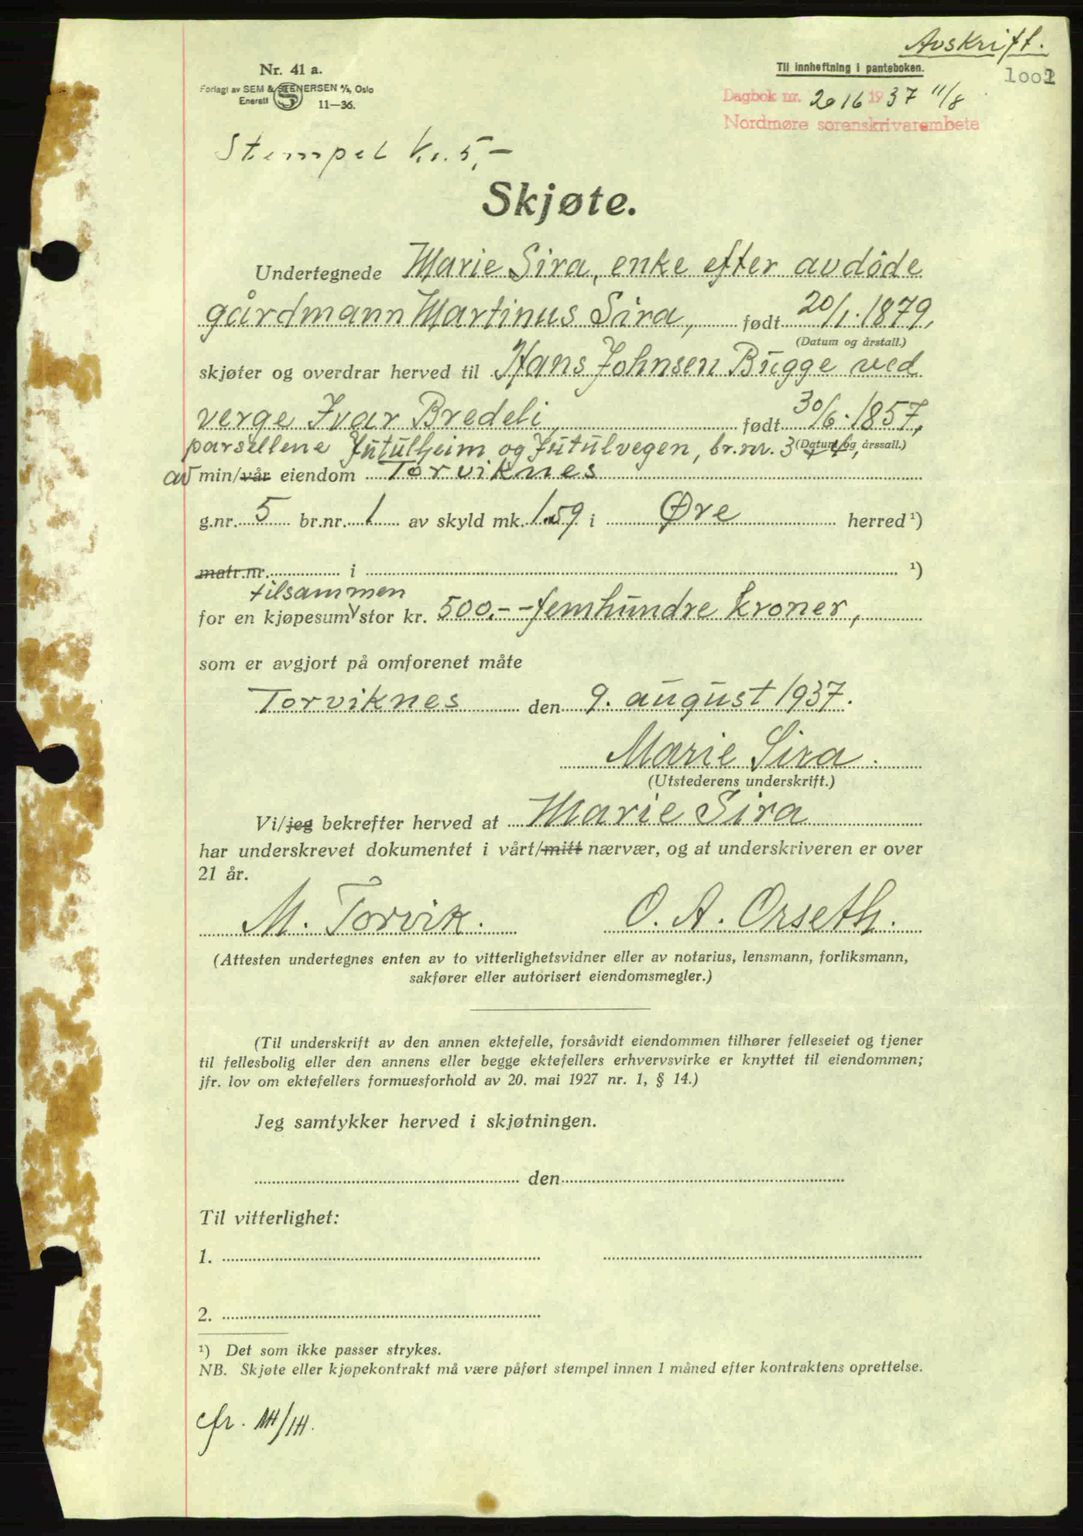 Avskrift.
Nr. 41 a.
Til innheftning i panteboken.
1002
Forlagt av SEM & STENERSEN A/S, Oslo
Enerett 11—36.
Dagbok nr. 2016 1937 11/8
Nordmøre sorenskrivarembete
Stempel kr. 5,-
Skjøte.
Undertegnede Marie Sira, enke efter avdøde
gårdmann Martinus Sira, født 20/1. 1879,
(Datum og årstall.)
skjøter og overdrar herved til Hans Johnsen Bugge ved
verge Ivar Bredeli, født 30/6. 1857,
(Datum og årstall.)
parsellene Jutulheim og Jutulvegen, br.nr. 3
av min/vår eiendom Torviknes
g.nr. 5 br.nr. 1 av skyld mk. 1.59 i Øre herred ¹)
matr.nr. i ¹)
tilsammen
for en kjøpesum stor kr. 500.-- femhundre kroner,
som er avgjort på omforenet måte
Torviknes den 9. august 1937.
Marie Sira.
(Utstederens underskrift.)
Vi/jeg bekrefter herved at Marie Sira
har underskrevet dokumentet i vårt/mitt nærvær, og at underskriveren er over
21 år.
M. Torvik. O. A. Orseth.
(Attesten undertegnes enten av to vitterlighetsvidner eller av notarius, lensmann, forliksmann,
sakfører eller autorisert eiendomsmegler.)
(Til underskrift av den annen ektefelle, forsåvidt eiendommen tilhører felleseiet og tjener
til fellesbolig eller den annens eller begge ektefellers erhvervsvirke er knyttet til eiendommen;
jfr. lov om ektefellers formuesforhold av 20. mai 1927 nr. 1, § 14.)
Jeg samtykker herved i skjøtningen.
den
Til vitterlighet:
1.
2.
¹) Det som ikke passer strykes.
NB. Skjøte eller kjøpekontrakt må være påført stempel innen 1 måned efter kontraktens oprettelse.
cfr.